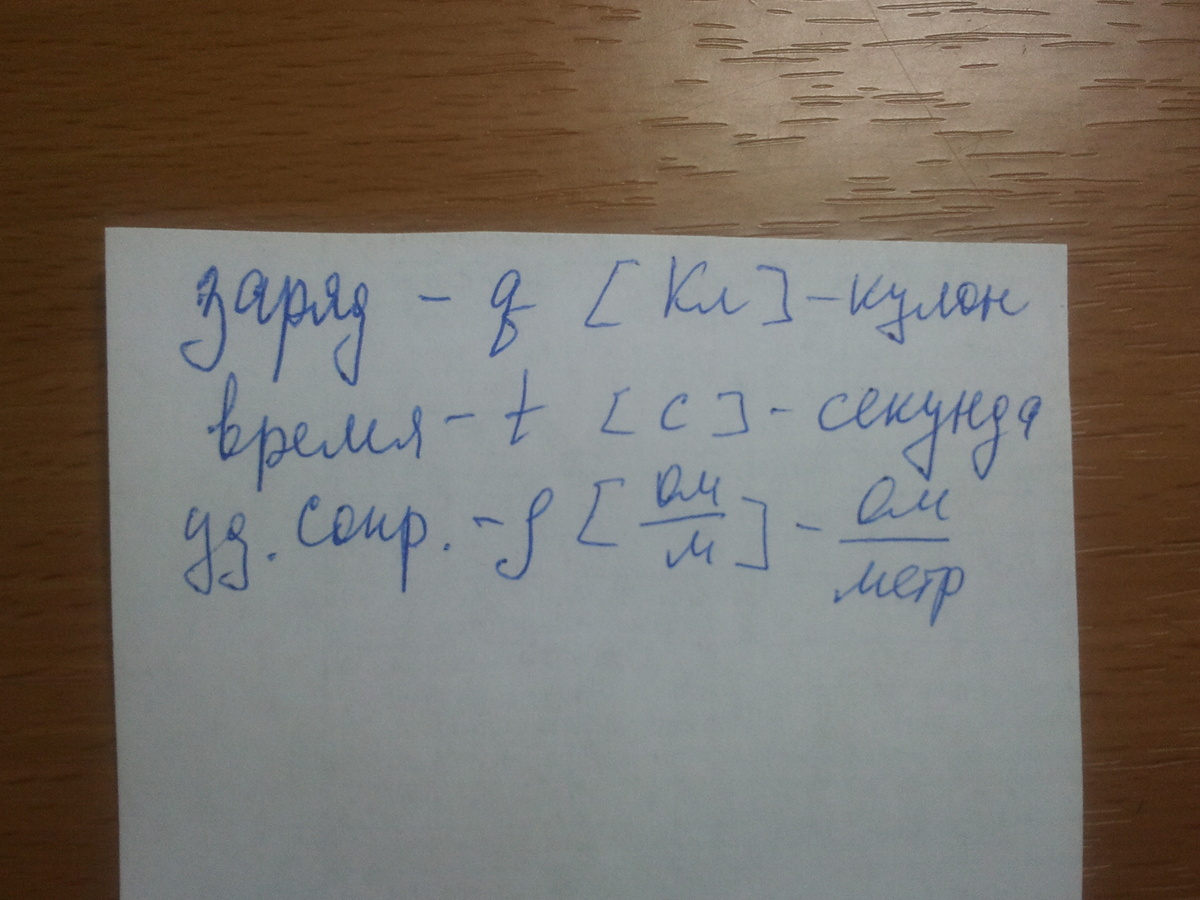 заряд - q [Кл] - кулон
время - t [с] - секунда
уд. сопр. - ρ [ом/м] - ом/метр